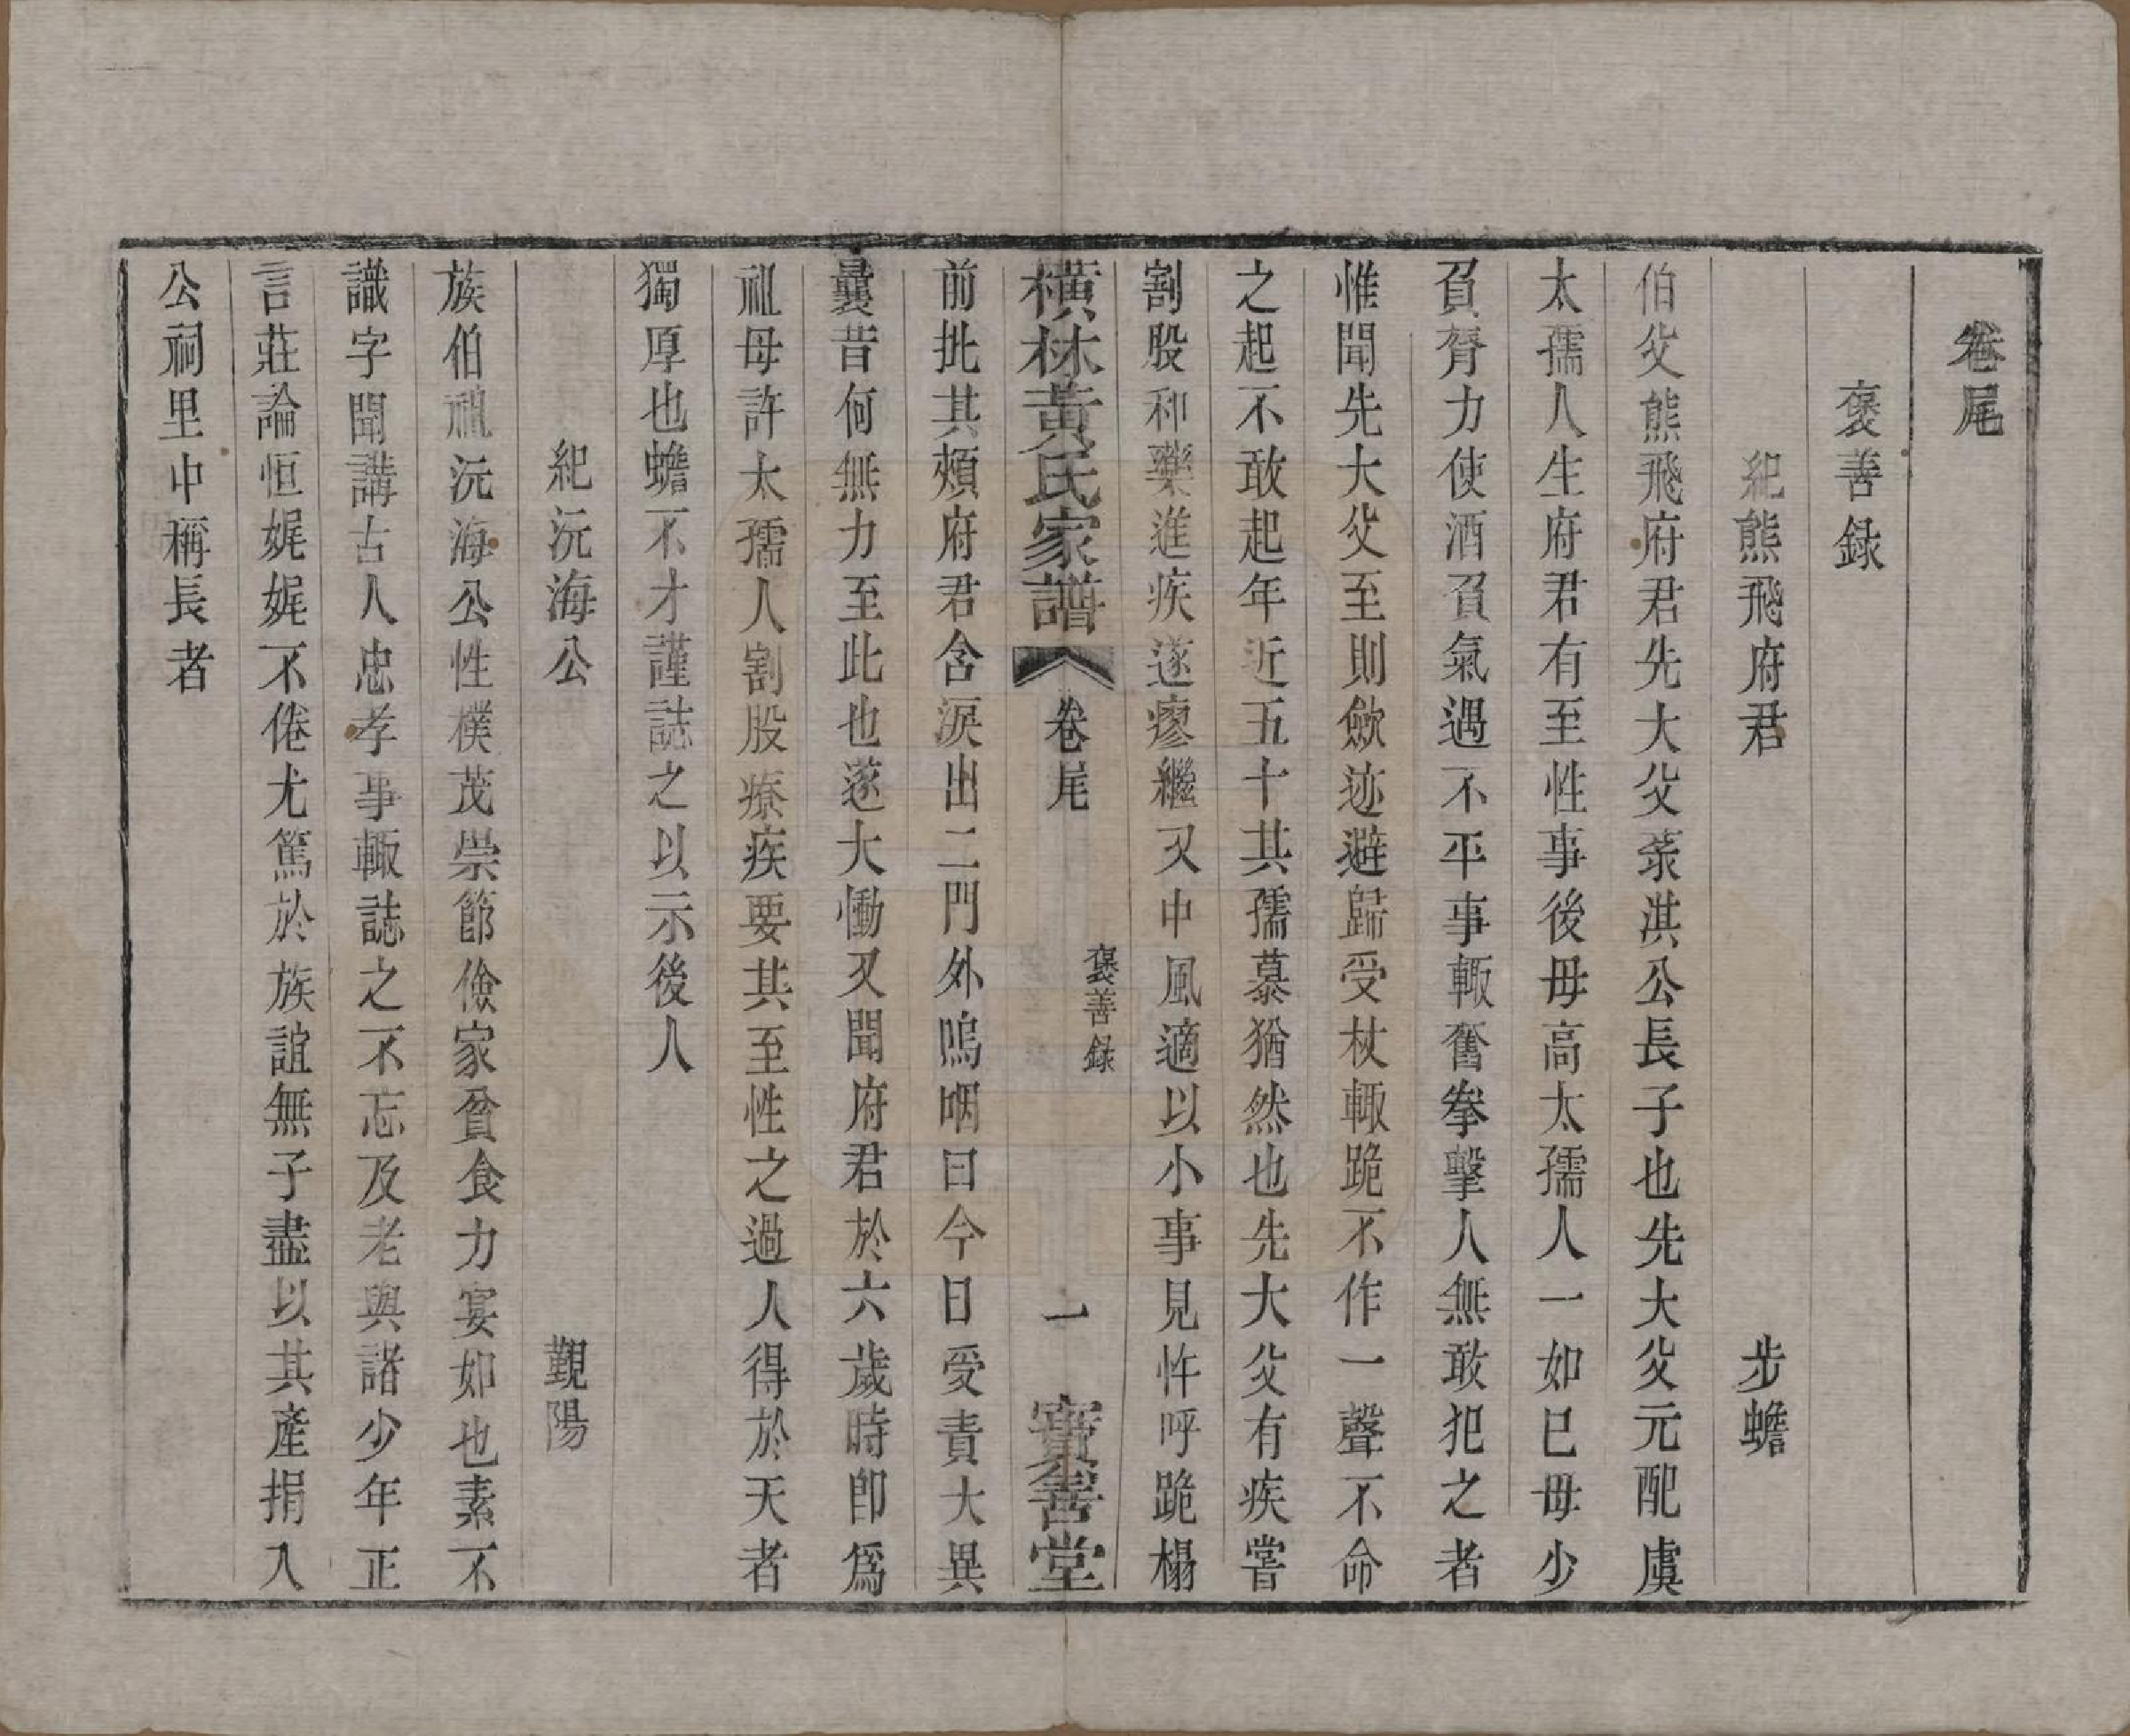 卷尾
褒善録
紀熊飛府君　步蟾
伯父熊飛府君先大父菉淇公長子也先大父元配虞
太孺人生府君有至性事後母高太孺人一如己母少
負膂力使酒負氣遇不平事輙奮拳擊人無敢犯之者
惟聞先大父至則歛迹避歸受杖輙跪不作一聲不命
之起不敢起年近五十其孺慕猶然也先大父有疾嘗
割股和藥進疾遂瘳繼又中風適以小事見忤呼跪榻
橫林黃氏家譜　卷尾　褒善録　一　寶善堂
前批其頰府君含淚出二門外嗚咽曰今日受責大異
曩昔何無力至此也遂大慟又聞府君於六歲時卽爲
祖母許太孺人割股療疾要其至性之過人得於天者
獨厚也蟾不才謹誌之以示後人
紀沅海公　覲陽
族伯祖沅海公性樸茂崇節儉家貧食力宴如也素不
識字聞講古人忠孝事輙誌之不忘及老與諸少年正
言莊論恒娓娓不倦尤篤於族誼無子盡以其產捐入
公祠里中稱長者